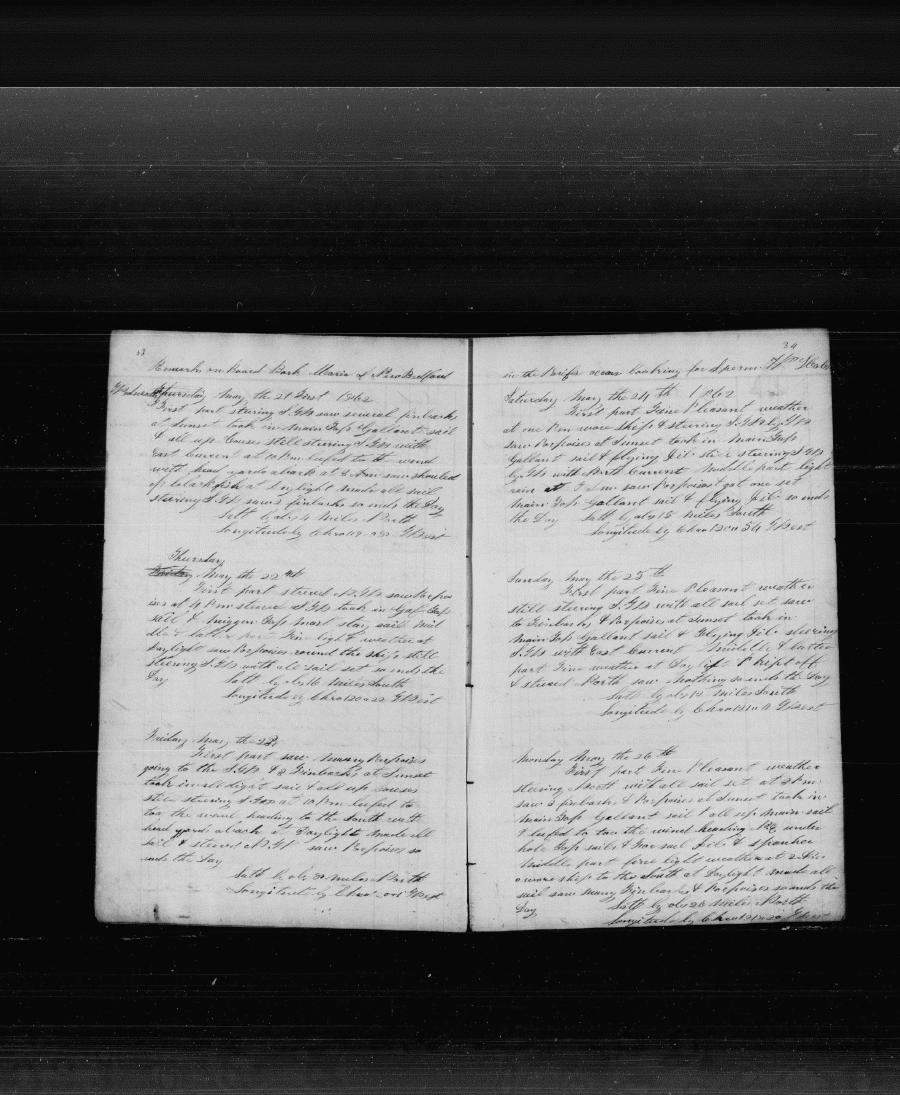 Remarks on Board Bark Maria of New Bedford
Wednesday Thursday May the 21 First 1862
First part stearing S.W saw several finbacks
at Sunset took in Main Top Gallant sail
& all up Couses still steering S.W with
East Current at 10 P.m luffed to the wind
with head yards aback at 2 A.m saw shouled
of blackfish at Daylight made all sail
steering S.W saw 2 finbacks so ends the Day
Latt by obs 4 miles North
Longitude by Chro
Thursday
May the 22
First part steered saw Porpos
ises at 4 P.m steered took in Gaf Top
sail & mizzen Top mast stay sail mid
dle & latter part Fine light weather at
daylight saw Porpoises round the ship still
steering S.W with all sail set so ends the
Day Latt by obs 16 miles South
Longitude by Chro West
Friday May the 23
First part saw many Porpoises
going to the & 2 Finbacks at Sunset
took in all light sail & all up couses
still steering at 10 P.m luffed to
too the wind heading to the South with
head yards aback at Daylight made all
sail & steered saw Porpoises so
ends the Day
Latt by obs miles North
Longitude by Chro West
34
in the looking for Sperm Whales
Saturday May the 24 th 1862
First part Fine Pleasant weather
at one P.m wore ship & steering
saw Porpoises at Sunset took in Main Top
Gallant sail & flying Jib still steering
with North Current Middle part light
rain at saw Porpoises got one set
Main Top Gallant sail & flying Jib so ends
the Day Latt by obs 18 miles South
Longitude by Chro West
Sunday May the 25 th
First part Fine Pleasant weather
still steering S.W with all sail set saw
to Finbacks & Porpoises at Sunset took in
Main Top Gallant sail & Flying Jib steering
S.W with East Current middle & latter
part Fine weather at Day Kept off
& steered North saw nothing so ends the Day
Latt by obs 12 miles South
Longitude by Chro West
Monday May the 26 th
First part Fine Pleasant weather
steering North with all sail set at 2 P.m
saw finbacks & Porpoises at Sunset took in
Main Top Gallant sail & all up main sail
& luffed to too the wind heading under
hole Top sails & Fore sail Jib & spanker
Middle part fine light weather at 2 A.m
wore ship to the South at Daylight made all
sail saw many Finbacks & Porpoises so ends the
Day Latt by obs 26 miles North
Longitude by Chro West